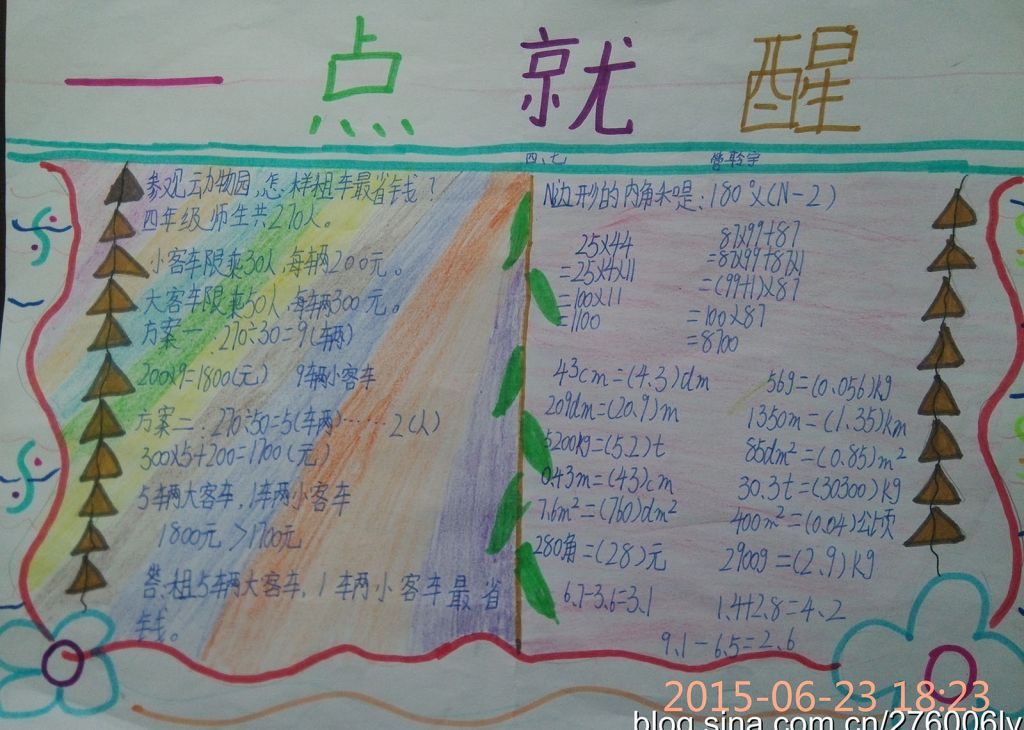 一点就醒
四、七
参观动物园,怎样租车最省钱?
四年级师生共270人。
小客车限乘30人,每辆200元。
大客车限乘50人,每辆300元。
方案一:270÷30=9(辆)
200×9=1800(元) 9辆小客车
方案二:270÷50=5(车辆)……2(人)
300×5+200=1700(元)
5辆大客车,1辆小客车
1800元>1700元
答:租5辆大客车,1辆小客车最省
钱。
N边形的内角和是:180°×(N-2)
25×44
=25×4×11
=100×11
=1100
87×99+87
=87×99+87×1
=(99+1)×87
=100×87
=8700
43cm=(4.3)dm 56g=(0.056)kg
209dm=(20.9)m 1350m=(1.35)km
5200kg=(5.2)t 85dm²=(0.85)m²
0.43m=(43)cm 30.3t=(30300)kg
7.6m²=(760)dm² 400m²=(0.04)公顷
280角=(28)元 2900g=(2.9)kg
6.7-3.6=3.1 1.4+2.8=4.2
9.1-6.5=2.6
2015-06-23 18:23
blog.sina.com.cn/276006ly